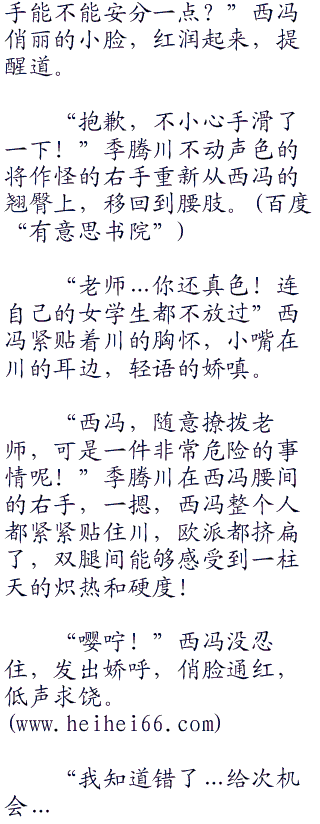 手能不能安分一点？”西冯
俏丽的小脸，红润起来，提
醒道。
“抱歉，不小心手滑了
一下！”季腾川不动声色的
将作怪的右手重新从西冯的
翘臀上，移回到腰肢。(百度
“有意思书院”)
“老师…你还真色！连
自己的女学生都不放过”西
冯紧贴着川的胸怀，小嘴在
川的耳边，轻语的娇嗔。
“西冯，随意撩拨老
师，可是一件非常危险的事
情呢！”季腾川在西冯腰间
的右手，一摁，西冯整个人
都紧紧贴住川，欧派都挤扁
了，双腿间能够感受到一柱
天的炽热和硬度！
“嘤咛！”西冯没忍
住，发出娇呼，俏脸通红，
低声求饶。
(www.heihei66.com)
“我知道错了…给次机
会…